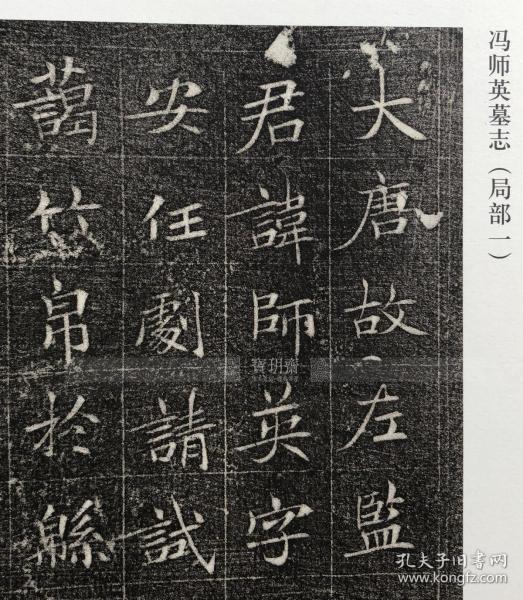 冯师英墓志（局部一）
大唐故左監
君諱師英字
安任劇請試
藹竹帛於緜
寶玥齋
孔夫子旧书网
www.kongfz.com